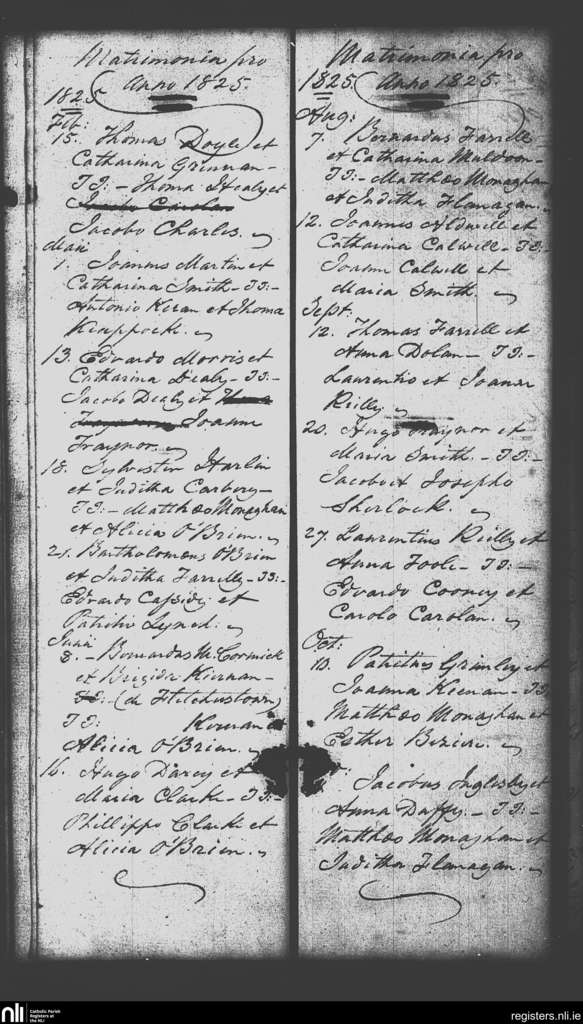 Matrimonia pro
Anno 1825.
1825
Feb:
15. Thomas Doyle et
Catharina Grinnan -
TT: - Thoma Healy et
Jacobo Charles.
Maii
1. Joannus Martin et
Catharina Smith - TT: -
Antonio Kiran et Thoma
Knippock.
13. Edvardo Morris et
Catharina Dealy - TT: -
Jacobo Dealy et
Joanne
Traynor.
18. Sylvester Harlin
et Juditha Carbery -
TT: - Matthæo Monaghan
et Alicia O'Brien.
21. Bartholomeus O'Brien
et Juditha Farrelly - TT: -
Edvardo Cassidy et
Patritio Lynch.
Junii
8. - Bernardus McCormick
et Brigida Kiernan -
(de Fletcherstown)
TT: Kiernan et
Alicia O'Brien.
16. Hugo Darcy et
Maria Clarke - TT: -
Phillippo Clarke et
Alicia O'Brien.
Matrimonia pro
1825. Anno 1825.
Aug:
7. Bernardus Farrelle
et Catharina Muldoon -
TT: - Matthæo Monaghan
et Juditha Flanagan.
12. Joannes Aldwell et
Catharina Calwell - TT: -
Joanne Calwell et
Maria Smith.
Sept:
12. Thomas Farrell et
Anna Dolan - TT: -
Laurentio et Joanna
Reilly.
20. Hugo Traynor et
Maria Smith. - TT: -
Jacobo et Josepho
Sherlock.
27. Laurentius Reilly et
Anna Foole - TT: -
Edvardo Cooney et
Carolo Carolan.
Oct:
10. Patritius Grimley et
Joanna Kienan - TT:
Matthæo Monaghan et
Esther
Jacobus Inglesby et
Anna Daffy. - TT: -
Matthæo Monaghan et
Juditha Flanagan.
nli Catholic Parish
Registers at
the NLI
registers.nli.ie